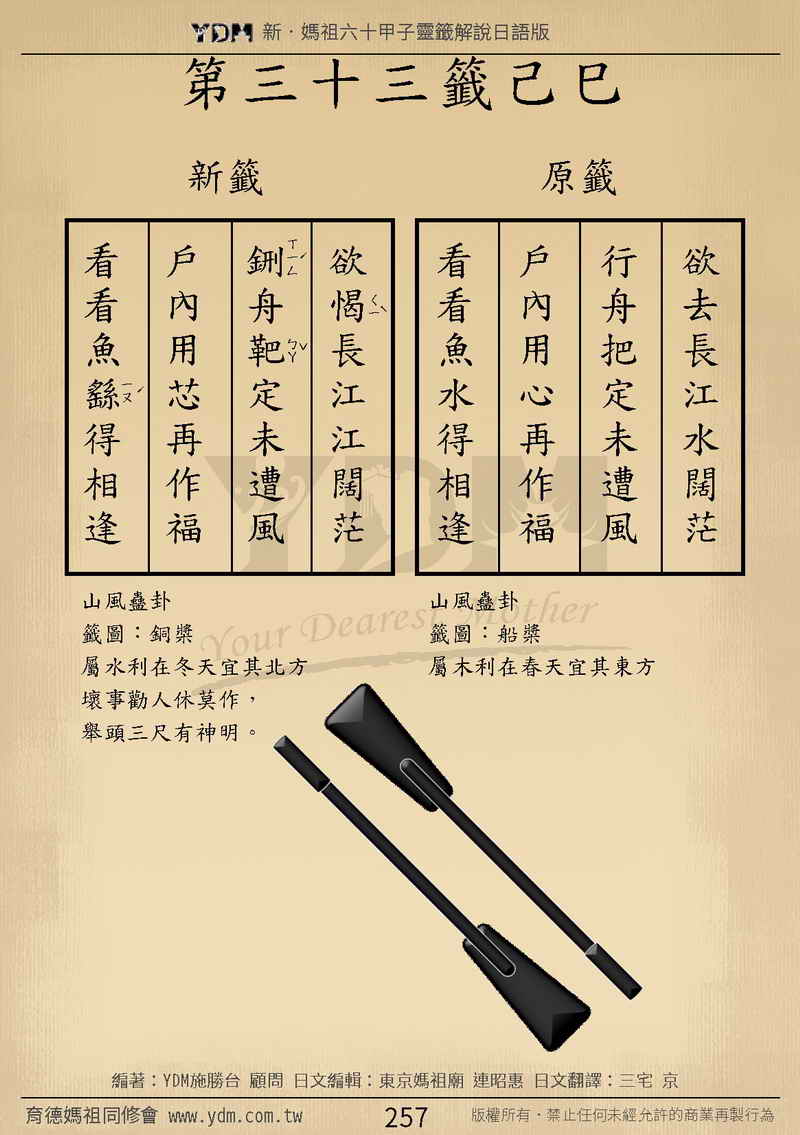 YDM 新．媽祖六十甲子靈籤解說日語版
第三十三籤己巳
原籤
欲去長江水闊茫
行舟把定未遭風
戶內用心再作福
看看魚水得相逢
山風蠱卦
籤圖：船槳
屬木利在春天宜其東方
新籤
欲愒ㄑㄧˋ長江江闊茫
鉶ㄒㄧㄥˊ舟靶ㄅㄚˇ定未遭風
戶內用芯再作福
看看魚繇ㄧㄡˊ得相逢
山風蠱卦
籤圖：銅槳
屬水利在冬天宜其北方
壞事勸人休莫作，
舉頭三尺有神明。
YDM
Your Dearest Mother
編著：YDM施勝台 顧問 日文編輯：東京媽祖廟 連昭惠 日文翻譯：三宅 京
育德媽祖同修會 www.ydm.com.tw
257
版權所有．禁止任何未經允許的商業再製行為